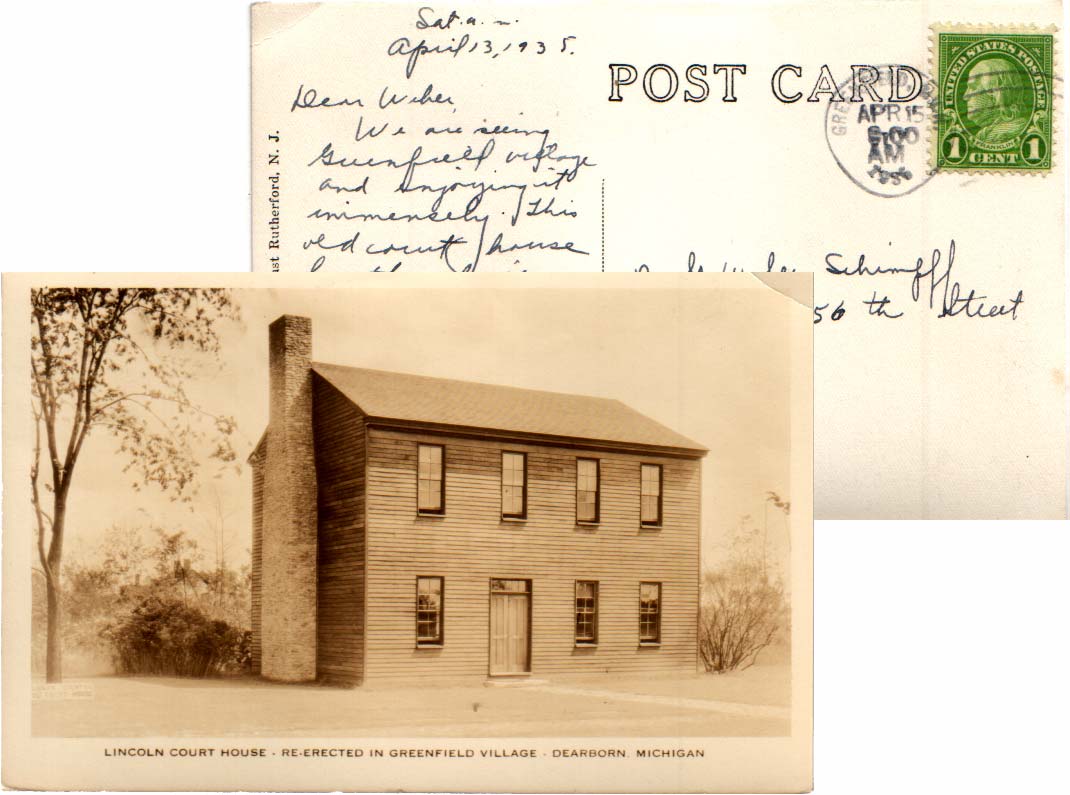 Sat. a. m.
April 13, 1935.
Dear Weber,
We are seeing
Greenfield village
and enjoying it
immensely. This
old court house
ust Rutherford, N. J.
POST CARD
GREENFIELD,
APR 15
6:00
AM
UNITED STATES POSTAGE
FRANKLIN
1 CENT 1
Schimpff
56 th Street
LINCOLN COURT HOUSE - RE-ERECTED IN GREENFIELD VILLAGE - DEARBORN, MICHIGAN